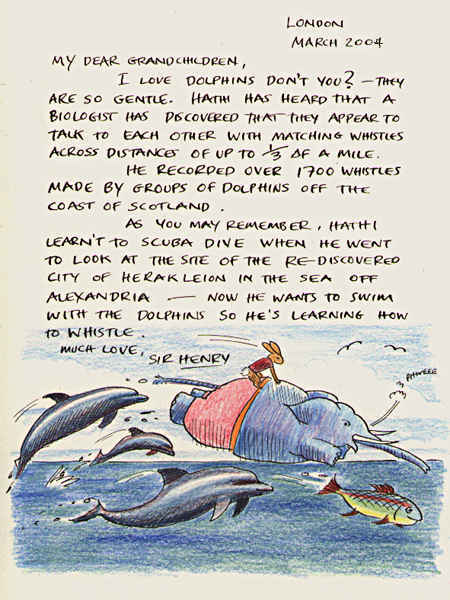 LONDON
MARCH 2004
MY DEAR GRANDCHILDREN,
I LOVE DOLPHINS DON'T YOU? - THEY
ARE SO GENTLE. HATHI HAS HEARD THAT A
BIOLOGIST HAS DISCOVERED THAT THEY APPEAR TO
TALK TO EACH OTHER WITH MATCHING WHISTLES
ACROSS DISTANCES OF UP TO 1/3 OF A MILE.
HE RECORDED OVER 1700 WHISTLES
MADE BY GROUPS OF DOLPHINS OFF THE
COAST OF SCOTLAND.
AS YOU MAY REMEMBER, HATHI
LEARN'T TO SCUBA DIVE WHEN HE WENT
TO LOOK AT THE SITE OF THE RE-DISCOVERED
CITY OF HERAKLEION IN THE SEA OFF
ALEXANDRIA — NOW HE WANTS TO SWIM
WITH THE DOLPHINS SO HE'S LEARNING HOW
TO WHISTLE.
MUCH LOVE,
SIR HENRY